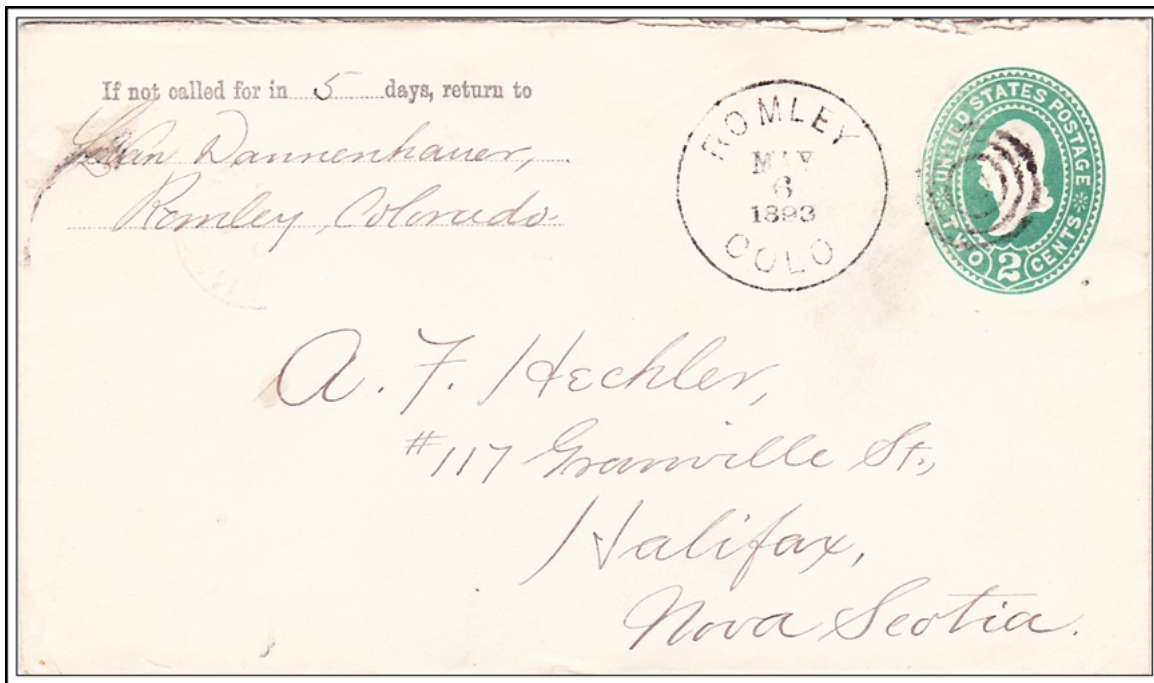 If not called for in 5 days, return to
Dannenhauer,
Romley, Colorado.
ROMLEY
MAY
6
1893
COLO
UNITED STATES POSTAGE
TWO 2 CENTS
A. F. Hechler,
#117 Granville St.,
Halifax,
Nova Scotia.